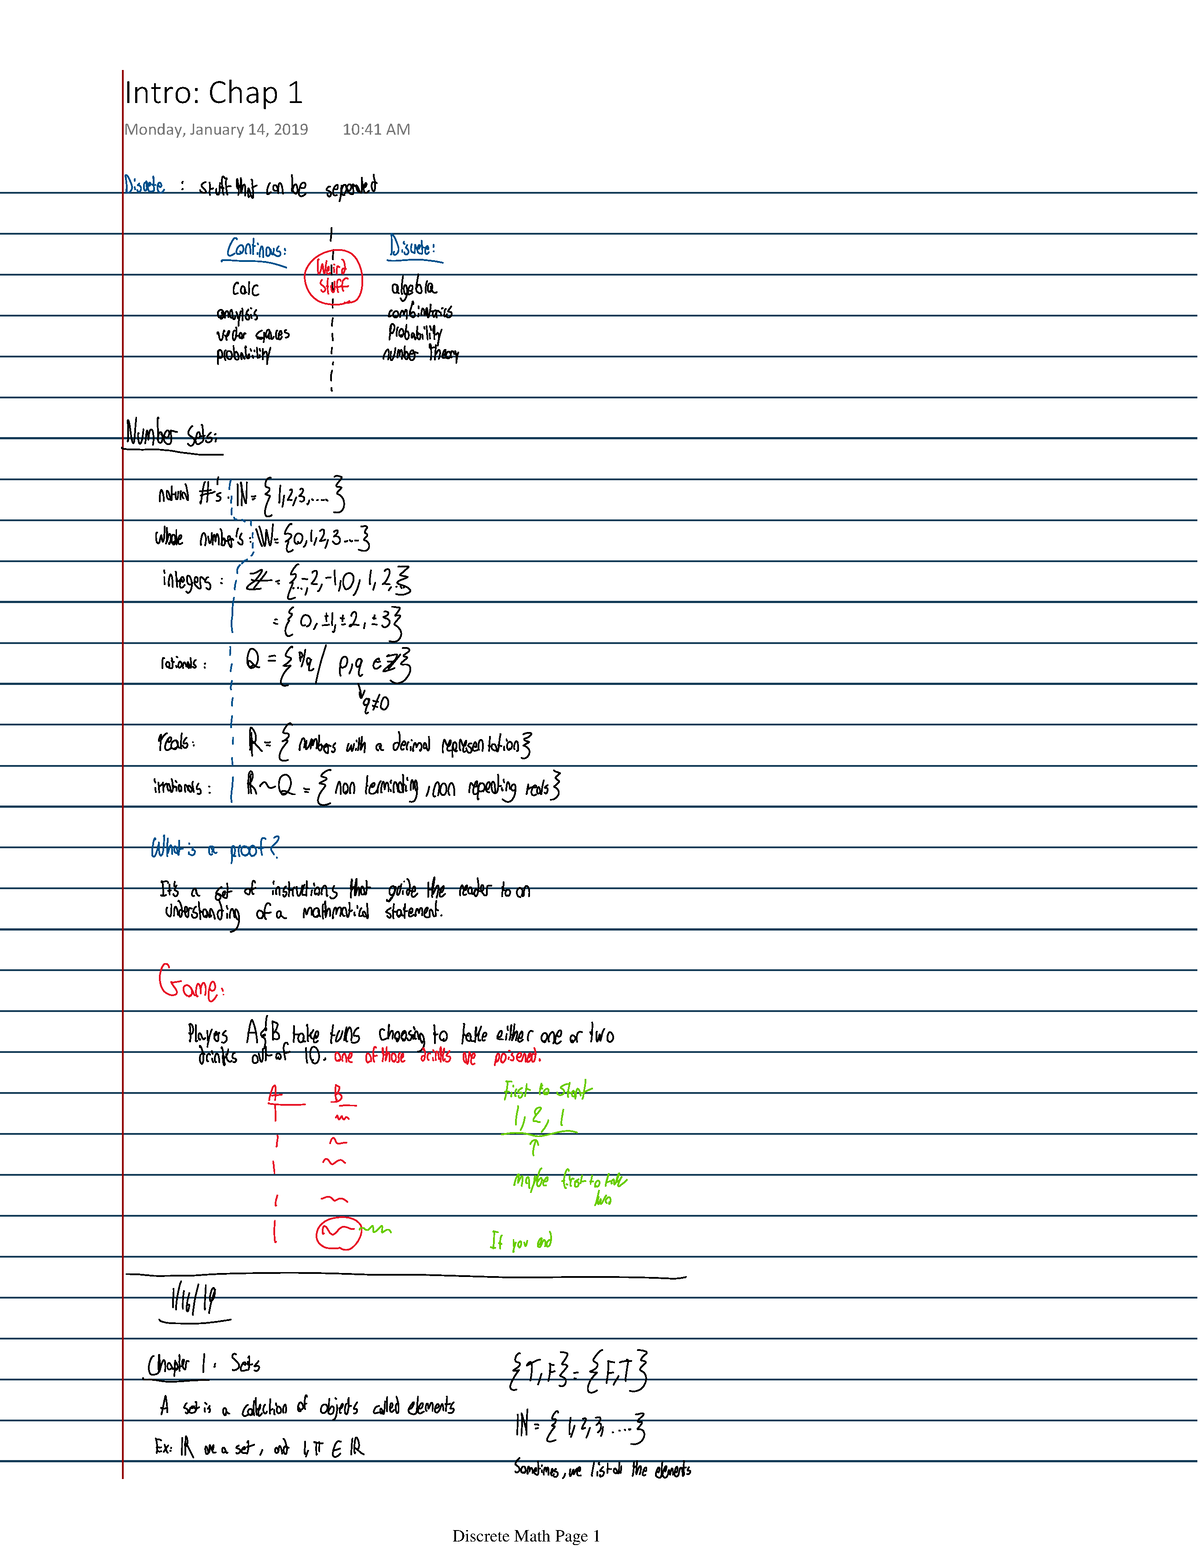 Intro: Chap 1
Monday, January 14, 2019 10:41 AM
Discrete : stuff that can be seperated
Continous: Weird stuff Discrete:
calc algebra
analysis combinatorics
vector spaces Probability
probability number theory
Number Sets:
natural #'s : ℕ = {1,2,3,....}
Whole number's : W = {0,1,2,3....}
integers : ℤ = {...,-2,-1,0,1,2,...}
= {0,±1,±2,±3}
rationals : Q = {p/q / p,q ∈ Z}
q≠0
reals: R = {numbers with a decimal representation}
irrationals : R~Q = {non terminating, non repeating reals}
What is a proof?
It's a set of instructions that guide the reader to an
understanding of a mathmatical statement.
Game:
Players A&B take turns choosing to take either one or two
drinks out of 10. one of those drinks are poisened.
A B
First to start
1, 2, 1
maybe first to take
two
If you end
1/16/19
Chapter 1: Sets
A set is a collection of objects called elements
Ex: ℝ are a set, and 1,π ∈ ℝ
{T,F} = {F,T}
ℕ = {1,2,3,....}
Sometimes, we list all the elements
Discrete Math Page 1